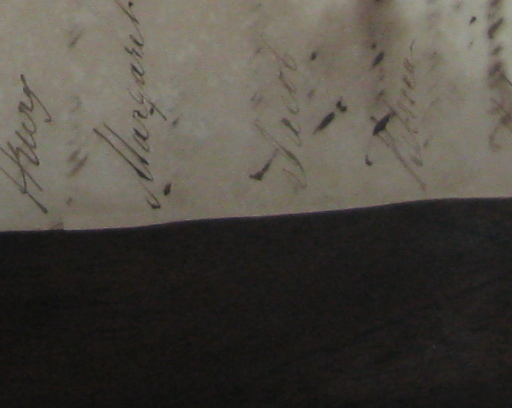 Henry
Margaret
Jacob
Rebecca